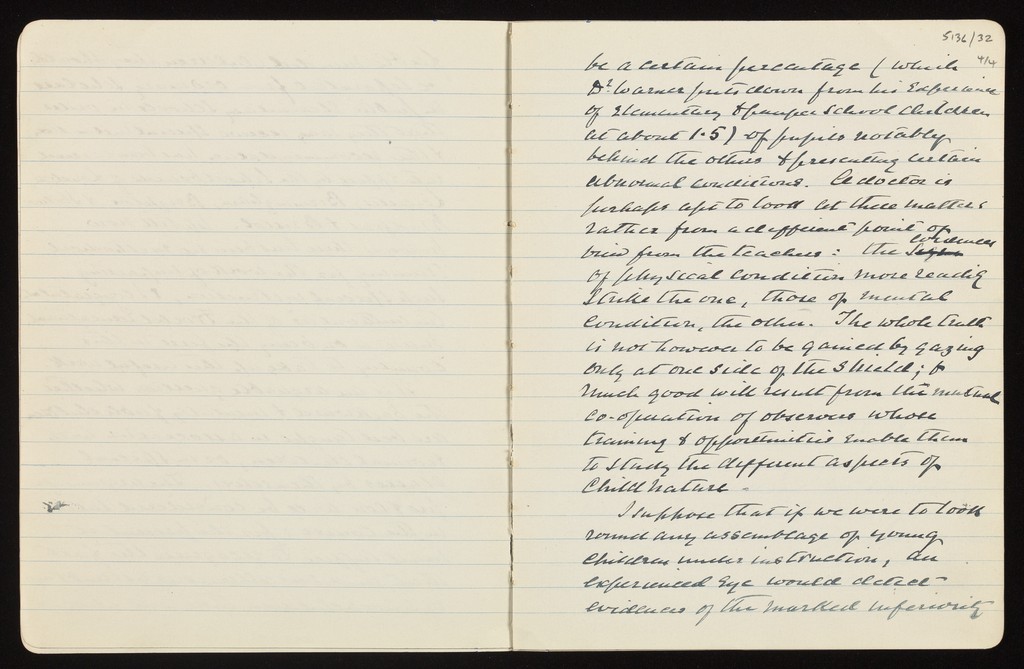 5136/32
4/4
be a certain percentage (which
Dr. Warner puts down from his Experience
of Elementary & pauper School children
at about 1.5) of pupils notably
behind the others & presenting certain
abnormal conditions. A doctor is
perhaps apt to look at these matters
rather from a different point of
view from the teachers: the evidences
of physical condition more readily
Strike the one, those of mental
Condition, the other. The whole truth
is not however to be gained by gazing
only at one side of the Shield; &
much good will result from the mutual
co-operation of observers whose
training & opportunities enable them
to study the different aspects of
Child nature.
I suppose that if we were to look
round any assemblage of young
Children under instruction, an
experienced Eye would detect
evidences of the marked inferiority